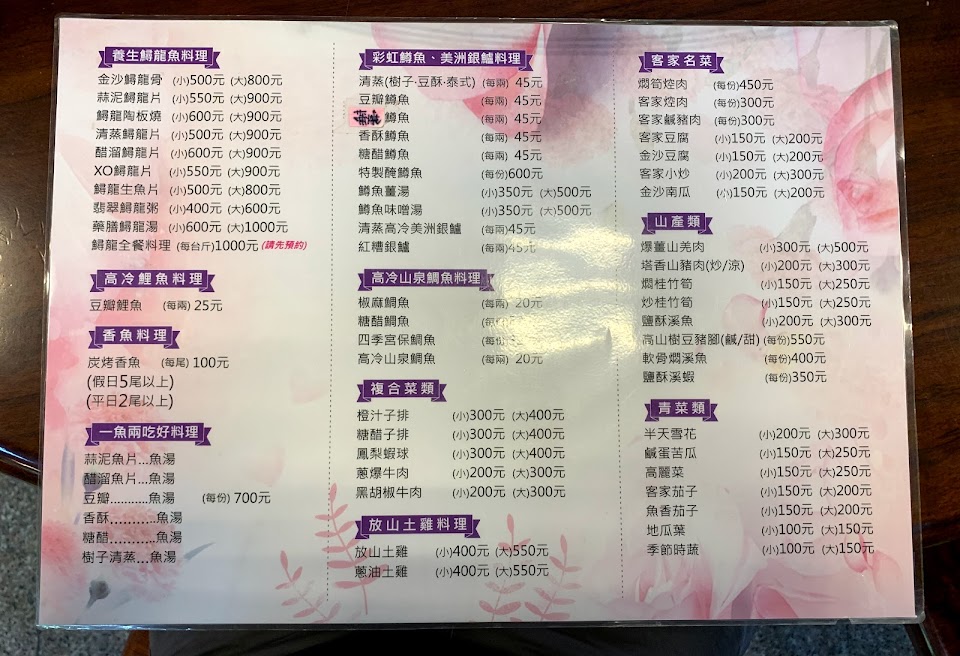 養生鱘龍魚料理
金沙鱘龍骨 (小)500元 (大)800元
蒜泥鱘龍片 (小)550元 (大)900元
鱘龍陶板燒 (小)600元 (大)900元
清蒸鱘龍片 (小)500元 (大)900元
醋溜鱘龍片 (小)600元 (大)900元
XO鱘龍片 (小)550元 (大)900元
鱘龍生魚片 (小)500元 (大)800元
翡翠鱘龍粥 (小)400元 (大)600元
藥膳鱘龍湯 (小)600元 (大)1000元
鱘龍全餐料理 (每台斤)1000元 (請先預約)
高冷鯉魚料理
豆瓣鯉魚 (每兩) 25元
香魚料理
炭烤香魚 (每尾) 100元
(假日5尾以上)
(平日2尾以上)
一魚兩吃好料理
蒜泥魚片...魚湯
醋溜魚片...魚湯
豆瓣...........魚湯 (每份) 700元
香酥...........魚湯
糖醋...........魚湯
樹子清蒸...魚湯
彩虹鱒魚、美洲銀鱸料理
清蒸(樹子‧豆酥‧泰式) (每兩) 45元
豆瓣鱒魚 (每兩) 45元
鱒魚 (每兩) 45元
香酥鱒魚 (每兩) 45元
糖醋鱒魚 (每兩) 45元
特製醃鱒魚 (每份)600元
鱒魚薑湯 (小)350元 (大)500元
鱒魚味噌湯 (小)350元 (大)500元
清蒸高冷美洲銀鱸 (每兩)45元
紅糟銀鱸 (每兩)45元
高冷山泉鯛魚料理
椒麻鯛魚 (每兩) 20元
糖醋鯛魚
四季宮保鯛魚
高冷山泉鯛魚 (每兩) 20元
複合菜類
橙汁子排 (小)300元 (大)400元
糖醋子排 (小)300元 (大)400元
鳳梨蝦球 (小)300元 (大)400元
蔥爆牛肉 (小)200元 (大)300元
黑胡椒牛肉 (小)200元 (大)300元
放山土雞料理
放山土雞 (小)400元 (大)550元
蔥油土雞 (小)400元 (大)550元
客家名菜
燜筍焢肉 (每份)450元
客家焢肉 (每份)300元
客家鹹豬肉 (每份)300元
客家豆腐 (小)150元 (大)200元
金沙豆腐 (小)150元 (大)200元
客家小炒 (小)200元 (大)300元
金沙南瓜 (小)150元 (大)200元
山產類
爆薑山羌肉 (小)300元 (大)500元
塔香山豬肉(炒/涼) (小)200元 (大)300元
燜桂竹筍 (小)150元 (大)250元
炒桂竹筍 (小)150元 (大)250元
鹽酥溪魚 (小)200元 (大)300元
高山樹豆豬腳(鹹/甜) (每份)550元
軟骨燜溪魚 (每份)400元
鹽酥溪蝦 (每份)350元
青菜類
半天雪花 (小)200元 (大)300元
鹹蛋苦瓜 (小)150元 (大)250元
高麗菜 (小)150元 (大)250元
客家茄子 (小)150元 (大)200元
魚香茄子 (小)150元 (大)200元
地瓜葉 (小)100元 (大)150元
季節時蔬 (小)100元 (大)150元